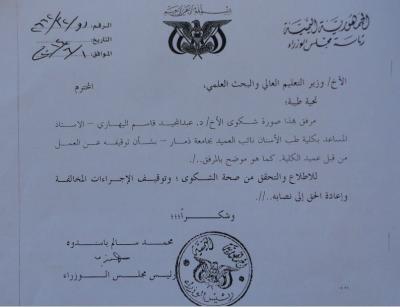 الجمهورية اليمنية
رئاسة مجلس الوزراء
الرقم:
التاريخ:
الموافق:
الأخ/ وزير التعليم العالي والبحث العلمي، المحترم
تحية طيبة؛
مرفق بهذا صورة شكوى الأخ/ د. عبدالمجيد قاسم البهاري – الاستاذ
المساعد بكلية طب الأسنان نائب العميد بجامعة ذمار – بشأن توقيفه عن العمل
من قبل عميد الكلية. كما هو موضح بالمرفق../
للاطلاع والتحقق من صحة الشكوى؛ وتوقيف الإجراءات المخالفة
وإعادة الحق إلى نصابه../.
وشكراً؛؛؛
محمد سالم باسندوه
رئيس مجلس الوزراء